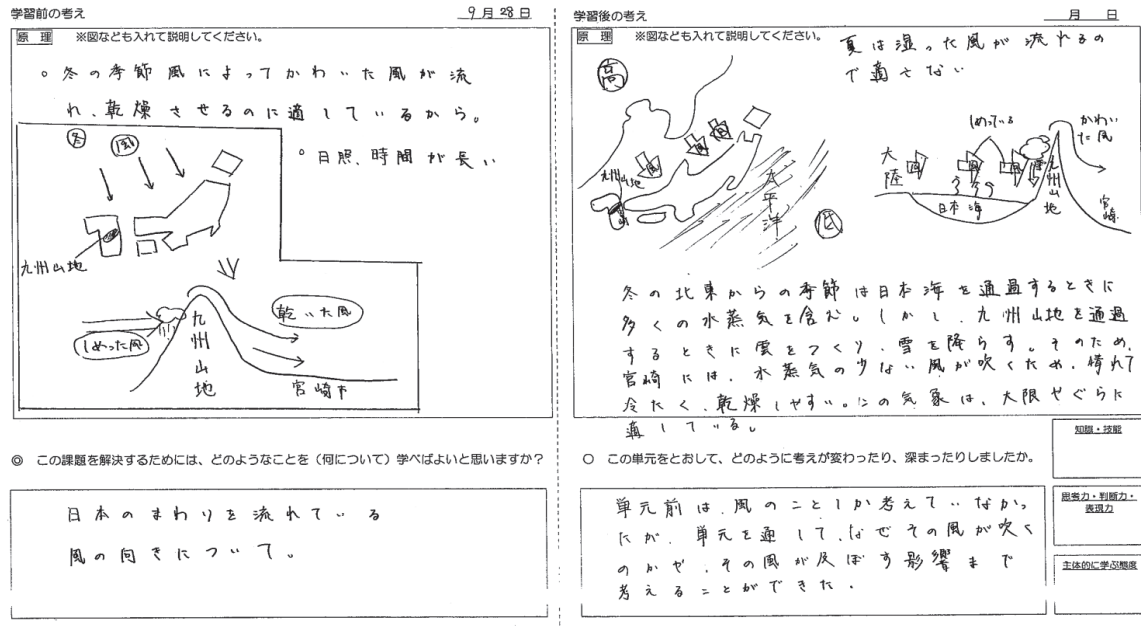 学習前の考え
9月28日
原理 ※図なども入れて説明してください。
○冬の季節風によってかわいた風が流
れ、乾燥させるのに適しているから。
○日照時間が長い
冬
風
九州山地
しめった風
九州山地
乾いた風
宮崎市
◎ この課題を解決するためには、どのようなことを（何について）学べばよいと思いますか？
日本のまわりを流れている
風の向きについて。
学習後の考え
月 日
原理 ※図なども入れて説明してください。
夏は湿った風が流れるの
で適さない
高
風
風
風
九州山地
太平洋
低
しめっている
かわい
た風
大陸
風
風
風
日本海
九州山地
宮崎
冬の北東からの季節は日本海を通過するときに
多くの水蒸気を含む。しかし、九州山地を通過
するときに雲をつくり、雪を降らす。そのため、
宮崎には、水蒸気の少ない風が吹くため、晴れて
冷たく、乾燥しやすい。この気象は、大根やぐらに
適している。
○ この単元をとおして、どのように考えが変わったり、深まったりしましたか。
単元前は、風のことしか考えていなかっ
たが、単元を通して、なぜその風が吹く
のかや、その風が及ぼす影響まで
考えることができた。
知識・技能
思考力・判断力・
表現力
主体的に学ぶ態度